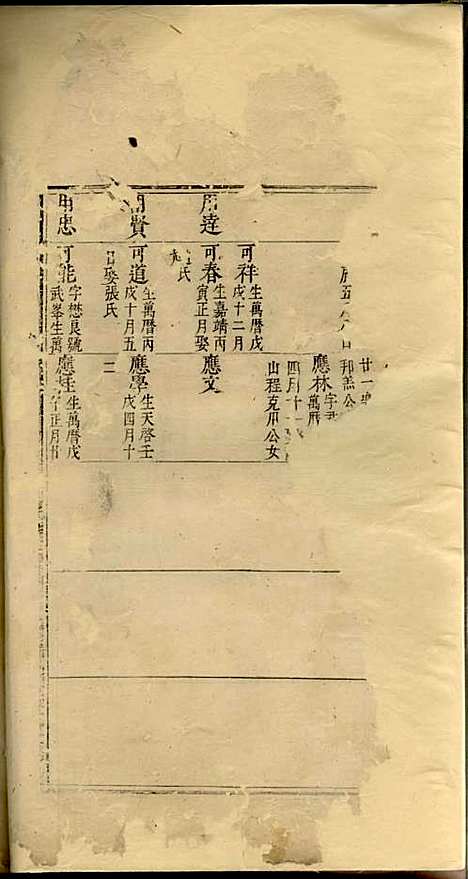 廿一
邦羔公
應林字
萬曆
四月十一
山程克用公女
用達
可祥生萬曆戊
戌十二月
可春生嘉靖丙
寅正月娶
氏
應文
用賢
可道生萬曆丙
戌十月五
日娶張氏
應學生天啓壬
戌四月十
二
用忠
可能字懋良號
武峯生萬
應生萬曆戊
子正月廿